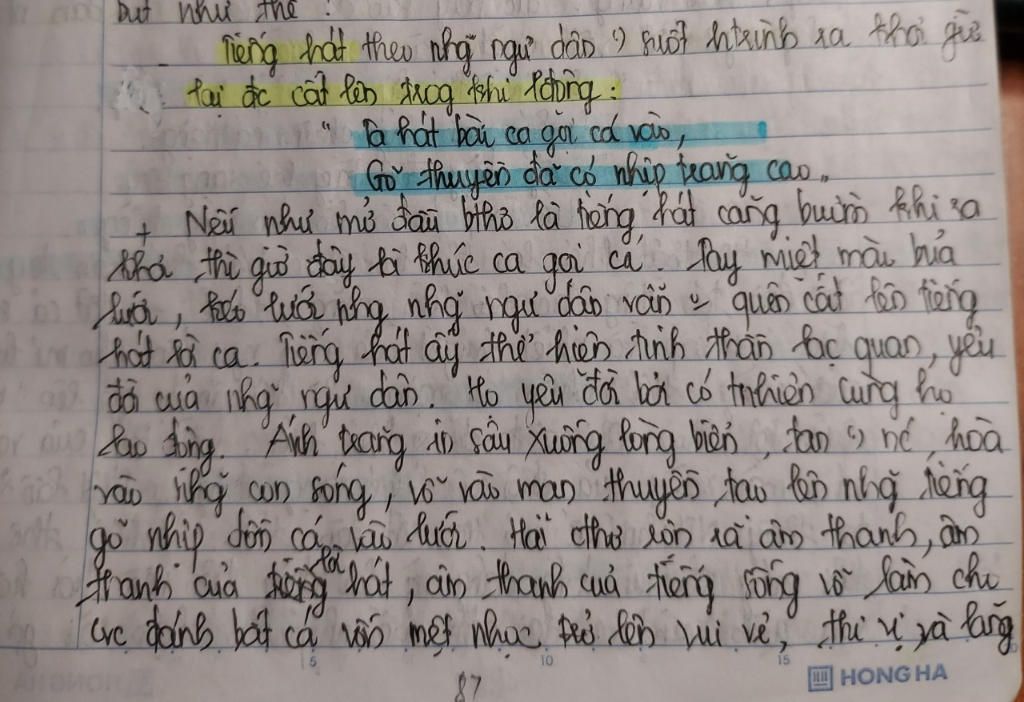 but như thế :
- Tiếng hát theo nhg̃ ngư dân ') suốt htrình ra khơi giờ
lại đc cất lên trog khi lđộng :
" Ta hát bài ca gọi cá vào,
Gõ thuyền đã có nhịp trăng cao "
+ Nếu như mở đầu bthơ là tiếng hát căng buồm khi ra
khơi thì giờ đây là khúc ca gọi cá. Tay miệt mài bủa
lưới, kéo lưới nhg nhg̃ ngư dân vẫn quên cất lên tiếng
hát lời ca. Tiếng hát ấy thể hiện tinh thần lạc quan, yêu
đời của nhg̃ ngư dân. Họ yêu đời bởi có tnhiên cùng họ
lao động. Ánh trăng in sâu xuống lòng biển, tan ') nc, hoà
vào nhg̃ con sóng, vỗ vào mạn thuyền tạo lên nhg̃ tiếng
gõ nhịp dồn cá vào lưới. Hai cthơ rộn rã âm thanh, âm
thanh của lời hát, âm thanh của tiếng sóng vỗ làm cho
cvc đánh bắt cá vốn mệt nhọc trở lên vui vẻ, thi vị và lãng
87
5 10 15
HONG HA